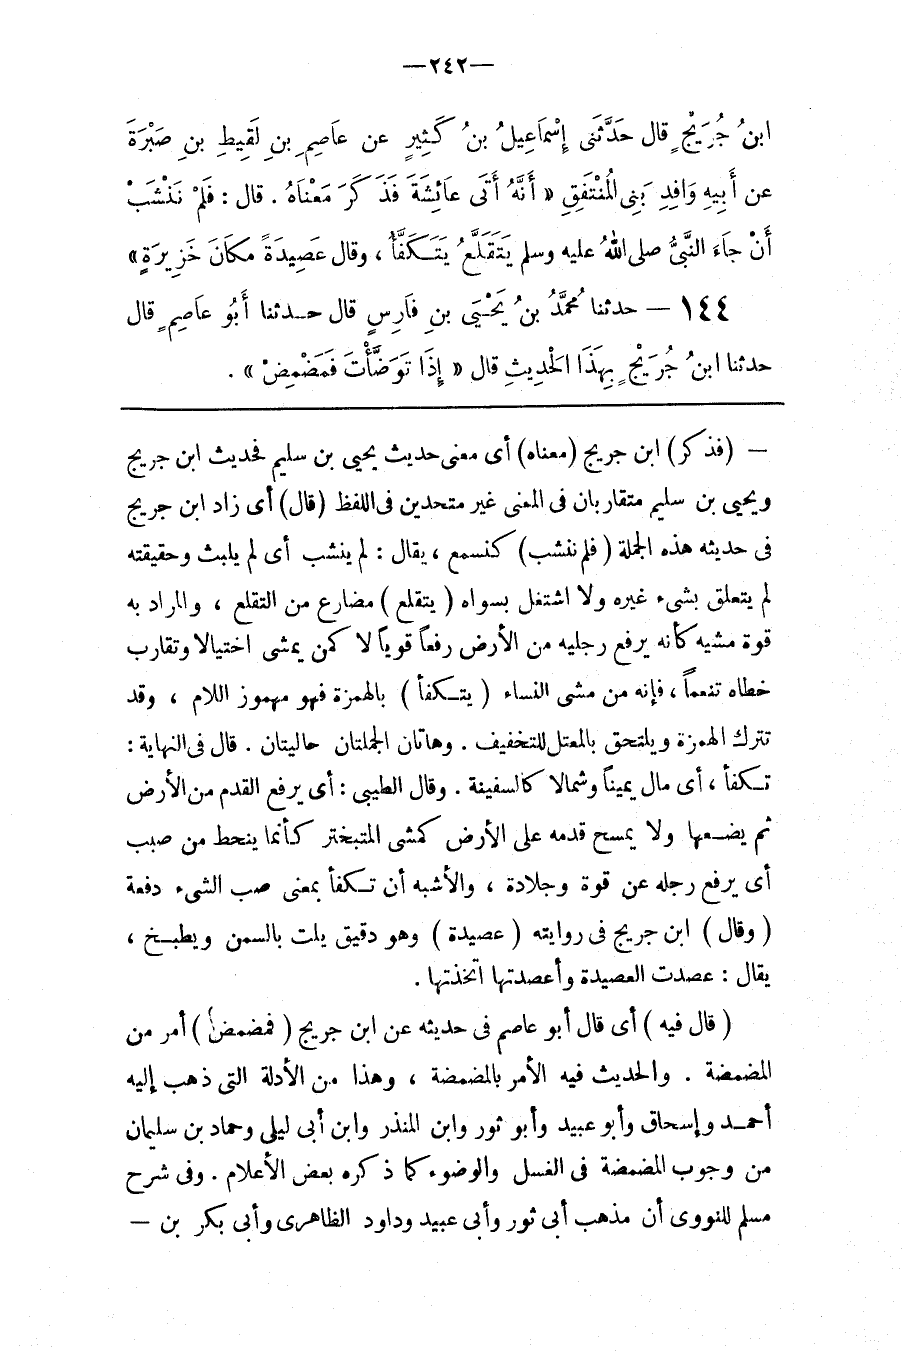 —٢٤٢—
ابنُ جُرَيْجٍ قال حَدَّثَنى إِسْمَاعِيلُ بنُ كَثِيرٍ عن عاَصِمِ بنِ لَقِيطِ بنِ صَبْرَةَ
عن أَبِيهِ وَافِدِ بَنِى الْمُنْتَفِقِ « أَنَّهُ أَتَى عاَئِشَةَ فَذَكَرَ مَعْنَاهُ . قال : فَلَمْ نَنْشَبْ
أَنْ جاَءَ النَّبىُّ صلى اللهُ عليه وسلم يَتَقَلَّعُ يَتَكَفَّأُ ، وقال عَصِيدَةً مَكاَنَ خَزِيرَةٍ»
١٤٤ — حدثنا مُحمَّدُ بنُ يَحْيَى بنِ فاَرِسٍ قال حدثنا أَبُو عاَصِمٍ قال
حدثنا ابنُ جُرَيْجٍ بِهَذَا الْحَدِيثِ قال « إِذَا تَوَضَّأْتَ فَمَضْمِضْ » .
— (فذكر) ابن جريج (معناه) أى معنى حديث يحيى بن سليم فحديث ابن جريج
ويحيى بن سليم متقاربان فى المعنى غير متحدين فى اللفظ (قال) أى زاد ابن جريج
فى حديثه هذه الجملة (فلم ننشب) كنسمع ، يقال : لم ينشب أى لم يلبث وحقيقته
لم يتعلق بشىء غيره ولا اشتغل بسواه ( يتقلع ) مضارع من التقلع ، والمراد به
قوة مشيه كأنه يرفع رجليه من الأرض رفعاً قوياً لا كمن يمشى اختيالا وتقارب
خطاه تنعماً ، فإنه من مشى النساء ( يتكفأ ) بالهمزة فهو مهموز اللام ، وقد
تترك الهمزة ويلتحق بالمعتل للتخفيف . وهاتان الجملتان حاليتان . قال فى النهاية :
تكفأ ، أى مال يميناً وشمالا كالسفينة . وقال الطيبى : أى يرفع القدم من الأرض
ثم يضعها ولا يمسح قدمه على الأرض كمشى المتبختر كأنما ينحط من صبب
أى يرفع رجله عن قوة وجلادة ، والأشبه أن تكفأ بمعنى صب الشىء دفعة
( وقال ) ابن جريج فى روايته ( عصيدة ) وهو دقيق يلت بالسمن ويطبخ ،
يقال : عصدت العصيدة وأعصدتها اتخذتها .
( قال فيه ) أى قال أبو عاصم فى حديثه عن ابن جريج ( فمضمض ) أمر من
المضمضة . والحديث فيه الأمر بالمضمضة ، وهذا من الأدلة التى ذهب إليه
أحمد وإسحاق وأبو عبيد وأبو ثور وابن المنذر وابن أبى ليلى وحماد بن سليمان
من وجوب المضمضة فى الغسل والوضوء كما ذكره بعض الأعلام . وفى شرح
مسلم للنووى أن مذهب أبى ثور وأبى عبيد وداود الظاهرى وأبى بكر بن —